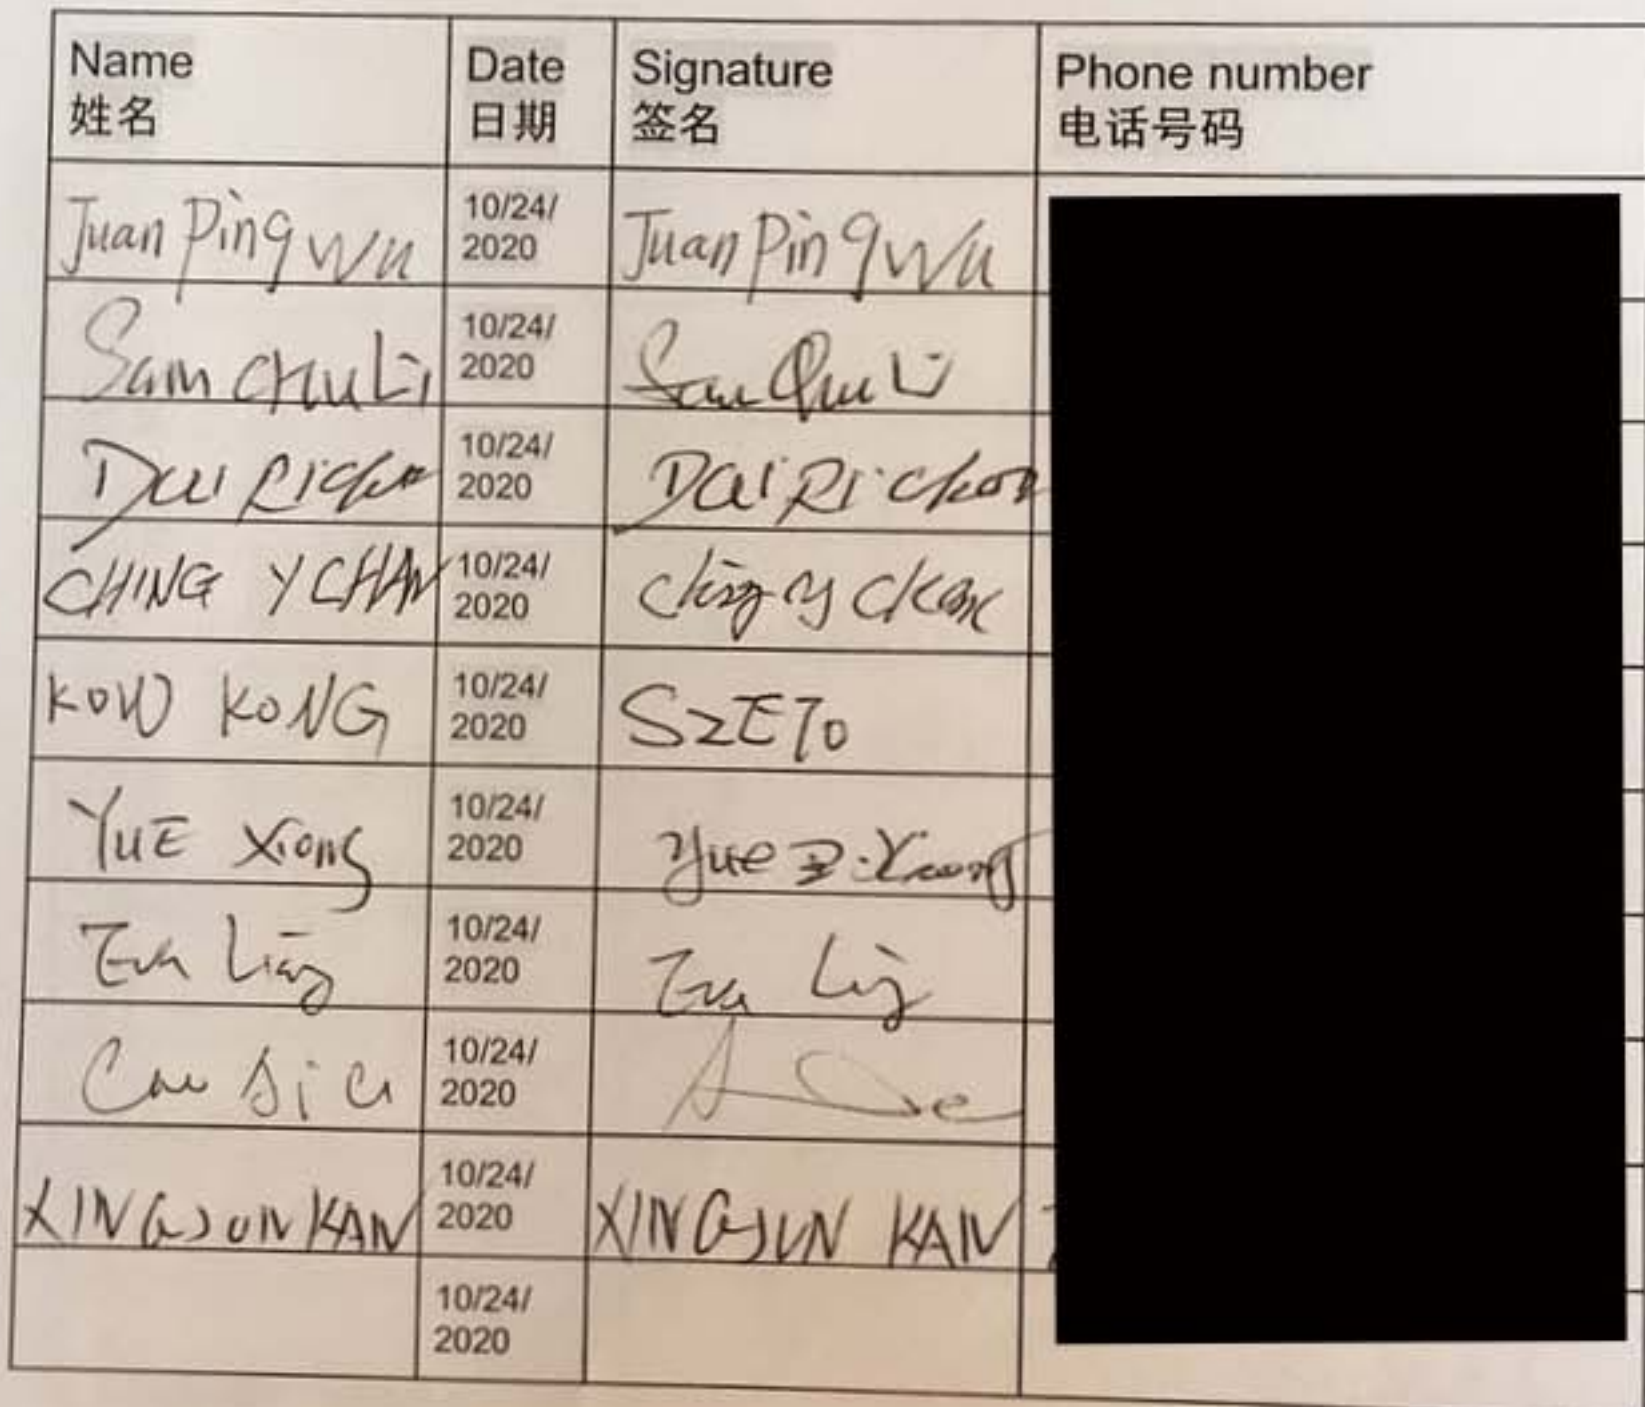 Name
姓名
Date
日期
Signature
签名
Phone number
电话号码
Juan Ping Wu
10/24/
2020
Juan Ping Wu
Sam CHu Li
10/24/
2020
Li
Dai Ri
10/24/
2020
Dai Ri
CHING Y CHAN
10/24/
2020
Ching Y Chan
KOW KONG
10/24/
2020
SZETO
YUE Xiong
10/24/
2020
Yue
Eva Liang
10/24/
2020
Eva
10/24/
2020
XINGJUN KAN
10/24/
2020
XINGJUN KAN
10/24/
2020